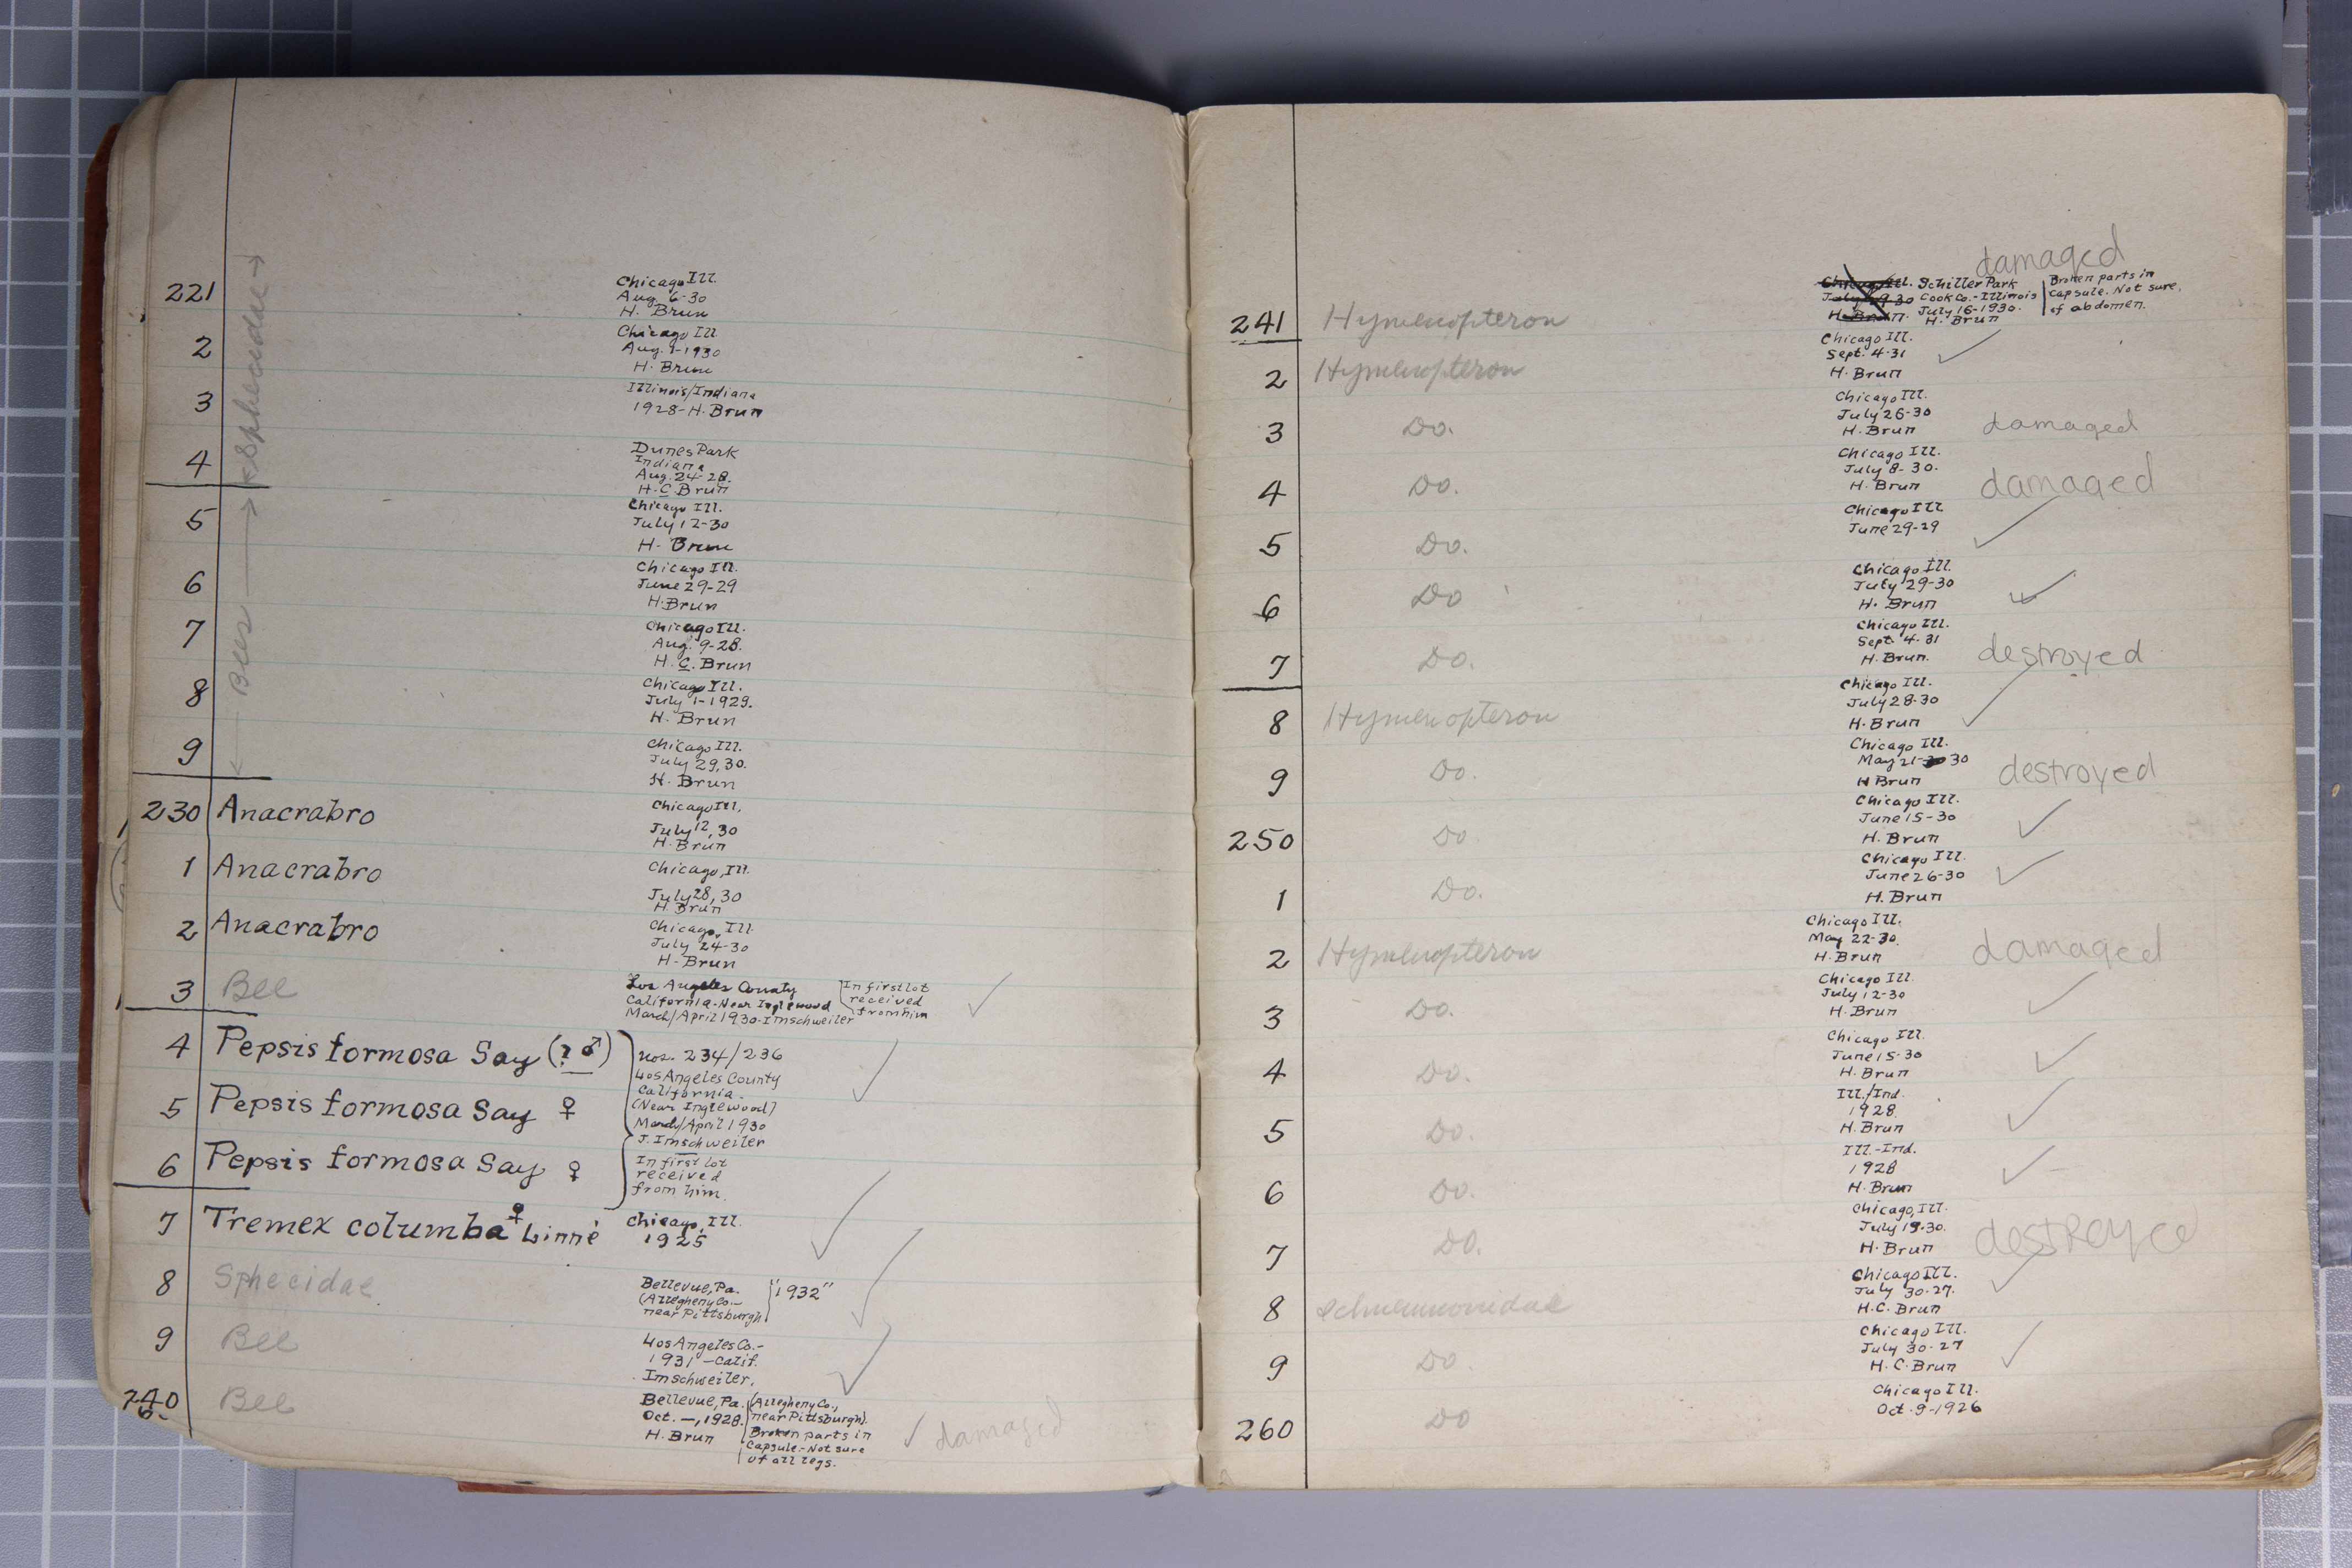 221
Chicago Ill.
Aug. 6-30
H. Brun
2
Chicago Ill.
Aug. 1-1930
H. Brun
3
Illinois/Indiana
1928-H. Brun
4
Dunes Park
Indiana
Aug. 24-28.
H. C. Brun
5
Chicago Ill.
July 12-30
H. Brun
6
Chicago Ill.
June 29-29
H. Brun
7
Chicago Ill.
Aug. 9-28.
H. C. Brun
8
Chicago Ill.
July 1-1929.
H. Brun
Bees
9
Chicago Ill.
July 29, 30.
H. Brun
230 Anacrabro
Chicago Ill.
July 12, 30
H. Brun
1 Anacrabro
Chicago, Ill.
July 28, 30
H. Brun
2 Anacrabro
Chicago, Ill.
July 24-30
H. Brun
3 Bee
Los Angeles County
California-Near Inglewood
March/April 1930-Imschweiler
In first lot
received
from him
4 Pepsis formosa Say (? ♂)
5 Pepsis formosa Say ♀
6 Pepsis formosa Say ♀
nos. 234/236
Los Angeles County
California.
(Near Inglewood)
March/April 1930
J. Imschweiler
In first lot
received
from him.
7 Tremex columba ♀ Linné
Chicago, Ill.
1925
8 Sphecidae
Bellevue, Pa.
(Allegheny Co.-
near Pittsburgh)
"1932"
9 Bee
Los Angeles Co.-
1931-Calif.
Imschweiler.
240 Bee
Bellevue, Pa.
Oct. —, 1928.
H. Brun
(Allegheny Co.,
near Pittsburgh).
Broken parts in
Capsule.-Not sure
of all legs.
✓ damaged
damaged
241 Hymenopteron
Chicago Ill.
July 29 30
H. Brun.
Schiller Park
Cook Co.-Illinois
July 16-1930.
H. Brun
Broken parts in
Capsule. Not sure.
of abdomen.
2 Hymenopteron
Chicago Ill.
Sept. 4-31
H. Brun
✓
3 Do.
Chicago Ill.
July 26-30
H. Brun
damaged
4 Do.
Chicago Ill.
July 8-30.
H. Brun
damaged
5 Do.
Chicago Ill
June 29-29
✓
6 Do
Chicago Ill.
July 29-30
H. Brun
✓
7 Do.
Chicago Ill.
Sept. 4-31
H. Brun.
destroyed
8 Hymenopteron
Chicago Ill.
July 28-30
H. Brun
✓
9 Do.
Chicago Ill.
May 21-30
H Brun
destroyed
250 Do.
Chicago Ill.
June 15-30
H. Brun
✓
1 Do.
Chicago Ill.
June 26-30
H. Brun
✓
2 Hymenopteron
Chicago Ill.
May 22-30.
H. Brun
damaged
3 Do.
Chicago Ill.
July 12-30
H. Brun
✓
4 Do.
Chicago Ill.
June 15-30
H. Brun
✓
5 Do.
Ill./Ind.
1928.
H. Brun
✓
6 Do.
Ill.-Ind.
1928
H. Brun
✓
7 Do.
Chicago, Ill.
July 19-30.
H. Brun
destroyed
8 Ichneumonidae
Chicago Ill.
July 30-27.
H. C. Brun
✓
9 Do.
Chicago Ill.
July 30-27
H. C. Brun
✓
260 Do
Chicago Ill.
Oct. 9-1926